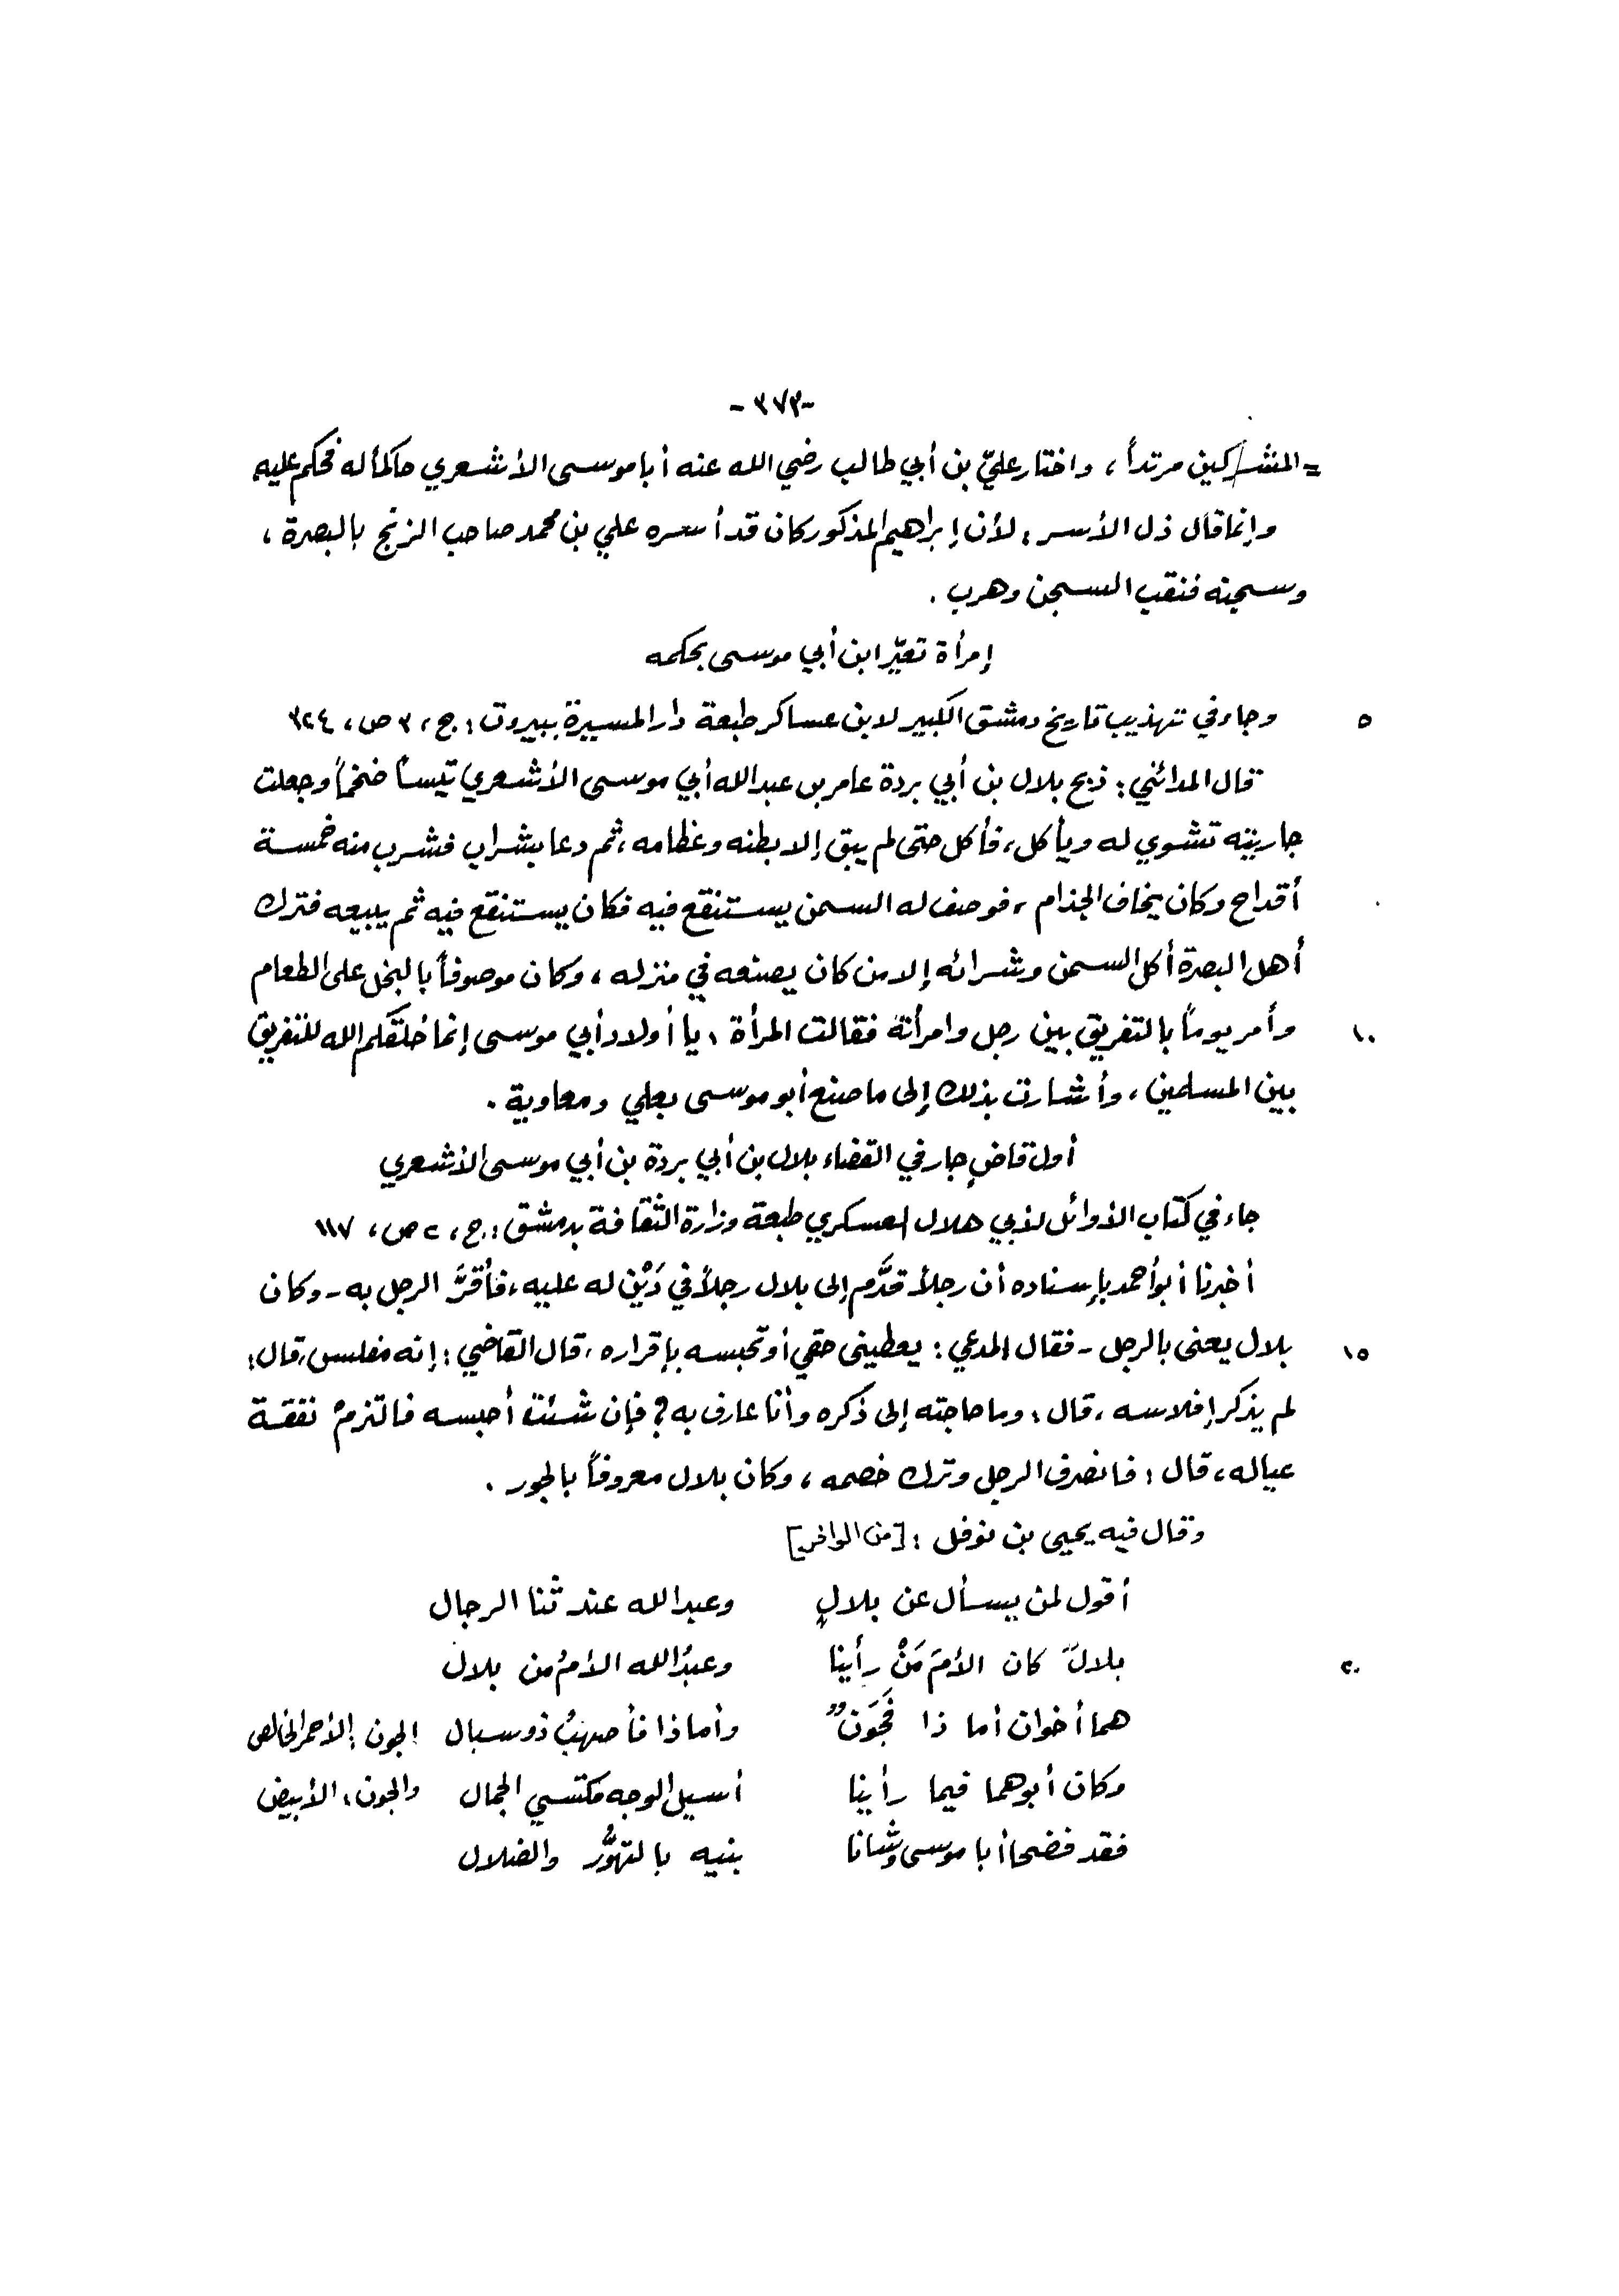 -٣٧٣-
= المشركين مرتداً، واختار عليّ بن أبي طالب رضي الله عنه أبا موسى الأشعري حاكماً له فحكم عليه
وإنما قال ذل الأسر، لأن إبراهيم المذكور كان قد أسره علي بن محمد صاحب الزنج بالبصرة،
وسجنه فنقب السجن وهرب.
إمرأة تعيّر ابن أبي موسى بحكمه
٥ وجاء في تهذيب تاريخ دمشق الكبير لابن عساكر طبعة دار المسيرة ببيروت: ج، ٣ ص، ٣٢٤
قال المدائني: ذبح بلال بن أبي بردة عامر بن عبد الله أبي موسى الأشعري تيساً ضخماً وجعلت
جاريته تشوي له ويأكل، فأكل حتى لم يبق إلا بطنه وعظامه، ثم دعا بشراب فشرب منه خمسة
أقداح وكان يخاف الجذام، فوصف له السمن يستنقع فيه فكان يستنقع فيه ثم يبيعه فترك
أهل البصرة أكل السمن وشرائه إلا من كان يصنعه في منزله، وكان موصوفاً بالبخل على الطعام
١٠ وأمر يوماً بالتفريق بين رجل وامرأته فقالت المرأة، يا أولاد أبي موسى إنما خلقكم الله للتفريق
بين المسلمين، وأشارت بذلك إلى ما صنع أبو موسى بعلي ومعاوية.
أول قاضٍ جار في القضاء بلال بن أبي بردة بن أبي موسى الأشعري
جاء في كتاب الأوائل لأبي هلال العسكري طبعة وزارة الثقافة بدمشق: ج، ٢ ص، ١١٧
أخبرنا أبو أحمد بإسناده أن رجلاً قدَّم إلى بلال رجلاً في دَيْن له عليه، فأقرَّ الرجل به - وكان
١٥ بلال يعنى بالرجل - فقال المدعي: يعطيني حقي أو تحبسه بإقراره، قال القاضي: إنه مفلس، قال:
لم يذكر إفلاسه، قال: وما حاجته إلى ذكره وأنا عارف به؟ فإن شئت أحبسه فالتزم نفقة
عياله، قال: فانصرف الرجل وترك خصمه، وكان بلال معروفاً بالجور.
وقال فيه يحيى بن نوفل: [من الوافر]
أقول لمن يسأل عن بلالٍ وعبد الله عند ثنا الرجال
٢٠ بلالٌ كان الأمَ مَنْ رأينا وعبدُ الله الأمُ من بلال
هما أخوان أما ذا فَجَونٌ وأما ذا فأصهبُ ذو سبال الجون: الأحمر الخالص
وكان أبوهما فيما رأينا أسيل الوجه مكتسي الجمال والجون: الأبيض
فقد فضحا أبا موسى وشانا بنيه بالتهوُّر والضلال